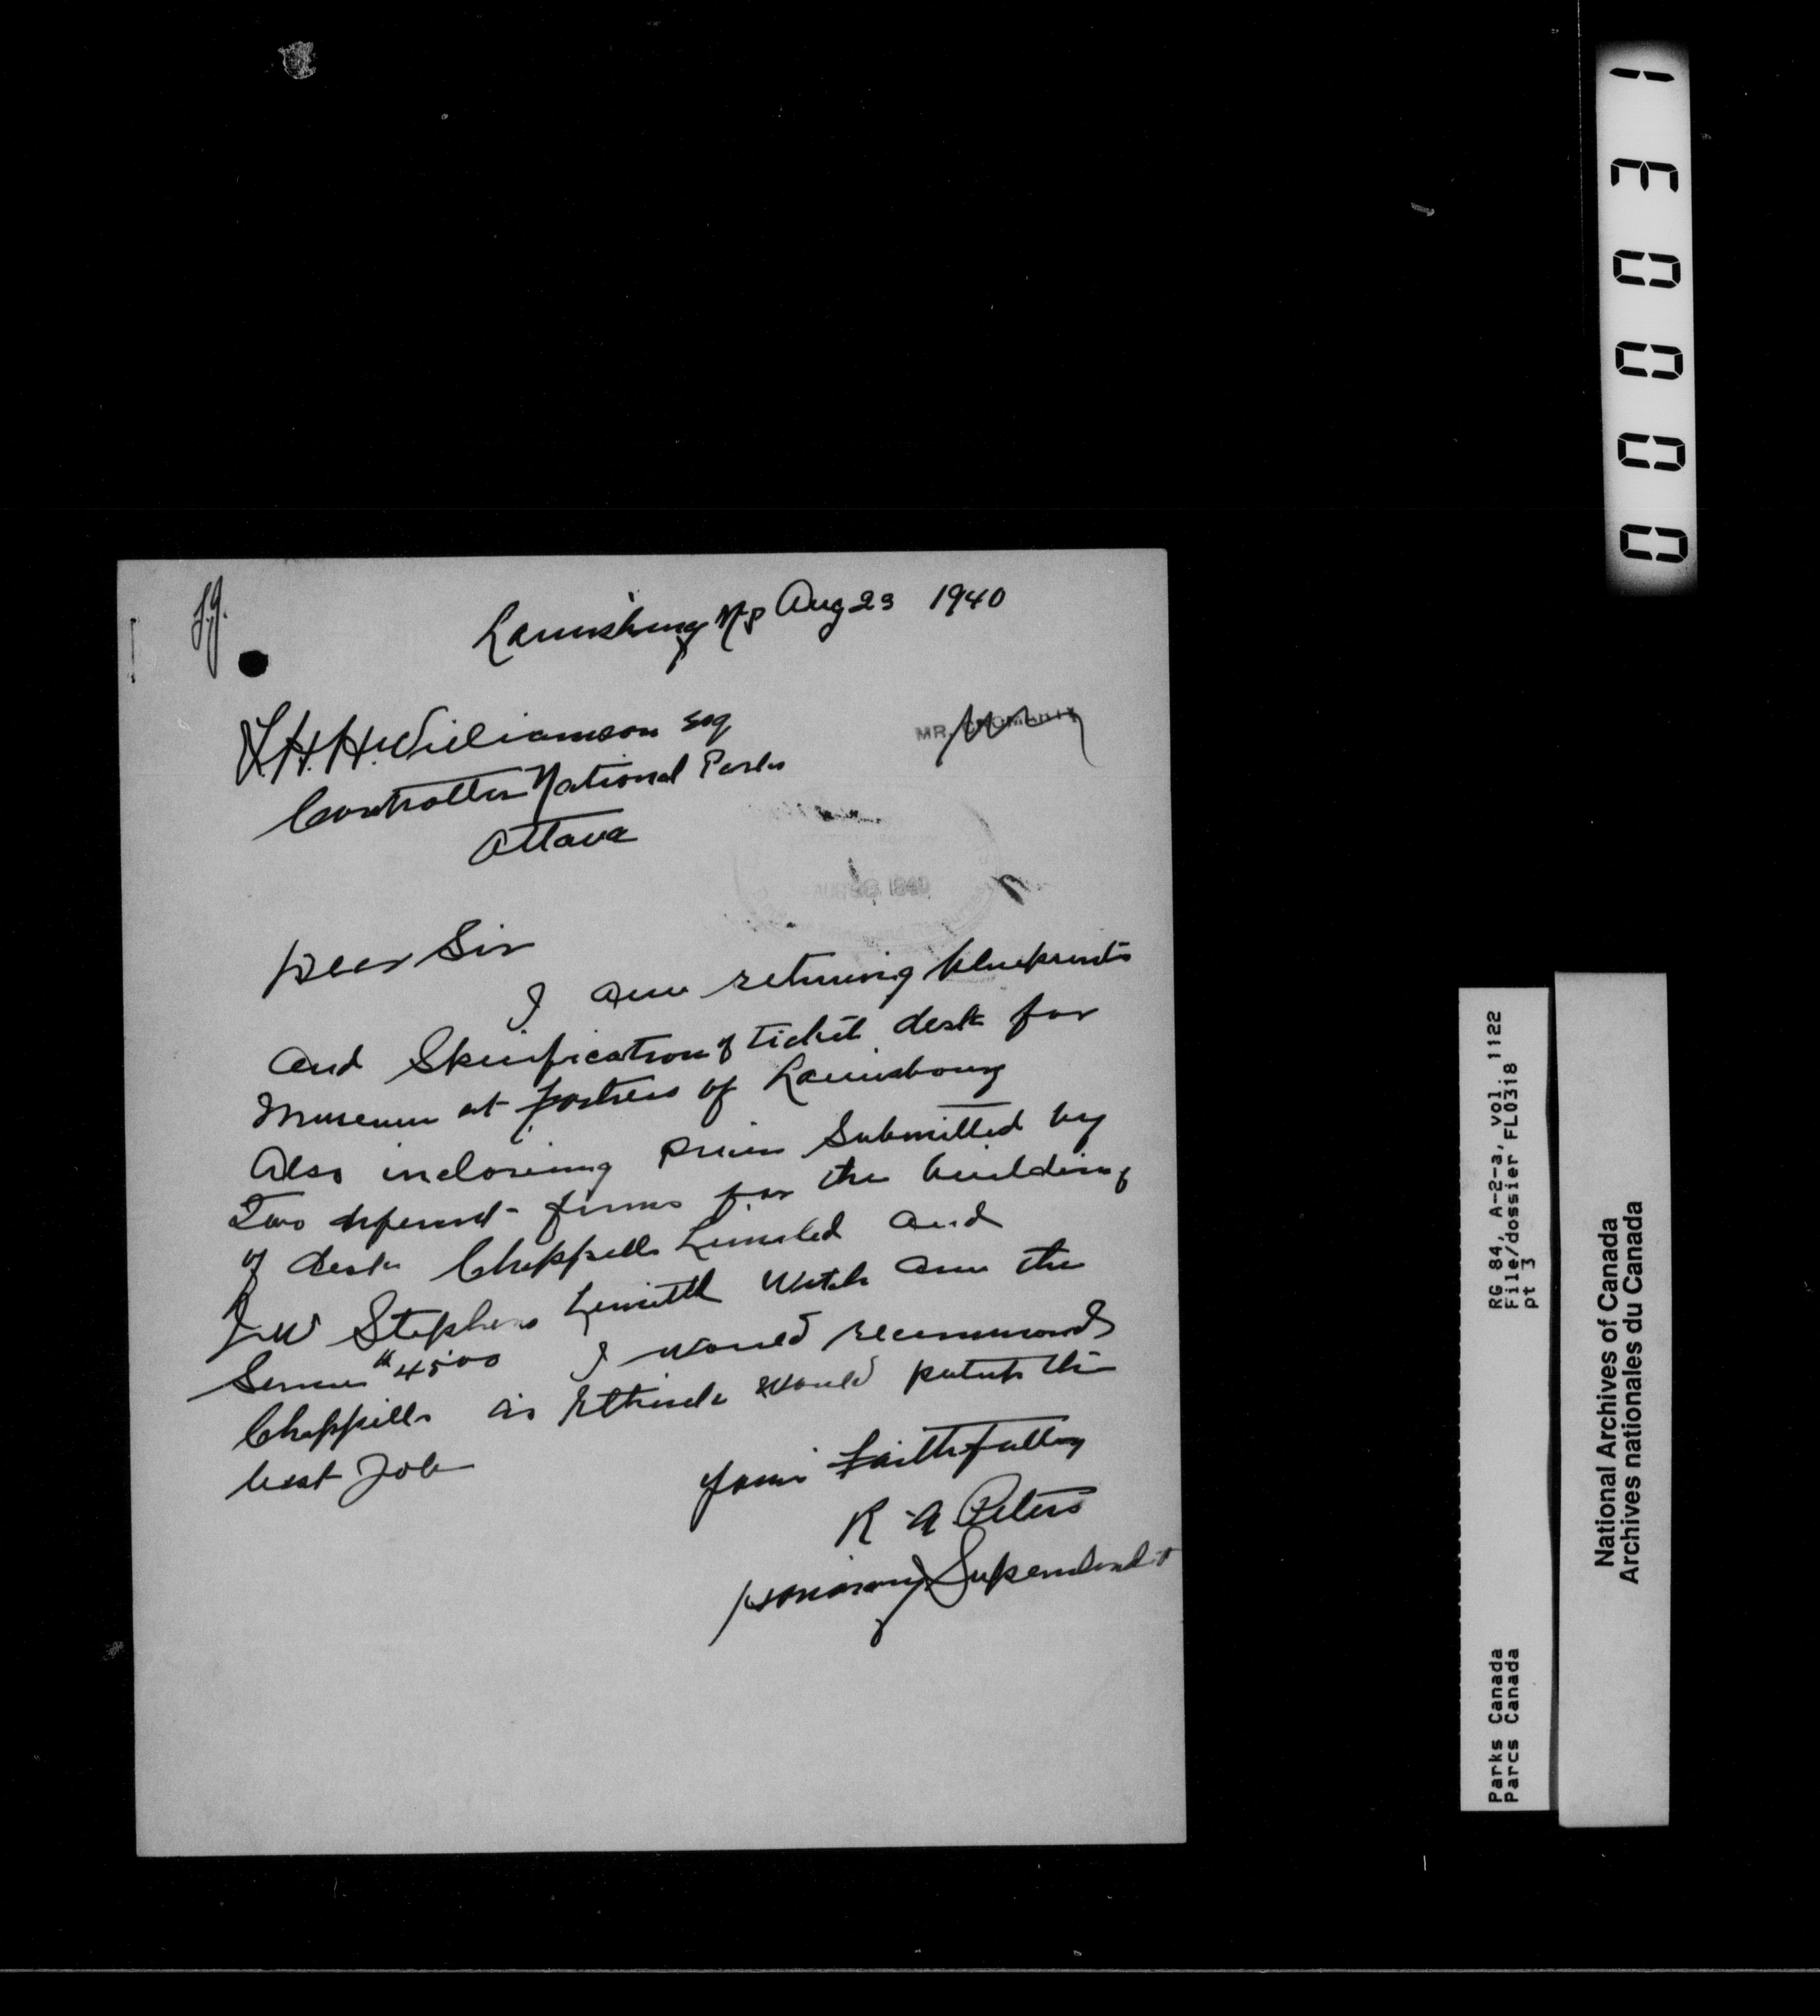 Louisbourg NS Aug 23 1940
F.H.H. Williamson Esq
Controller National Parks
Ottawa
MR.
AUG 1940
Dear Sir
I am returning blueprints
and Skecification of ticket desk for
Museum at Fortress of Louisbourg
Also inclosing prices submitted by
Two diferent firms for the building
of desk Chappells Limited and
J W Stephens Limited Witch are the
Same $4500 I would recommend
Chappells as I think would put up the
best Job
Yours faithfully
R A Peters
Honorary Superndendt
130000
RG 84, A-2-a, vol. 1122
File/dossier FL0318
pt 3
Parks Canada
Parcs Canada
National Archives of Canada
Archives nationales du Canada